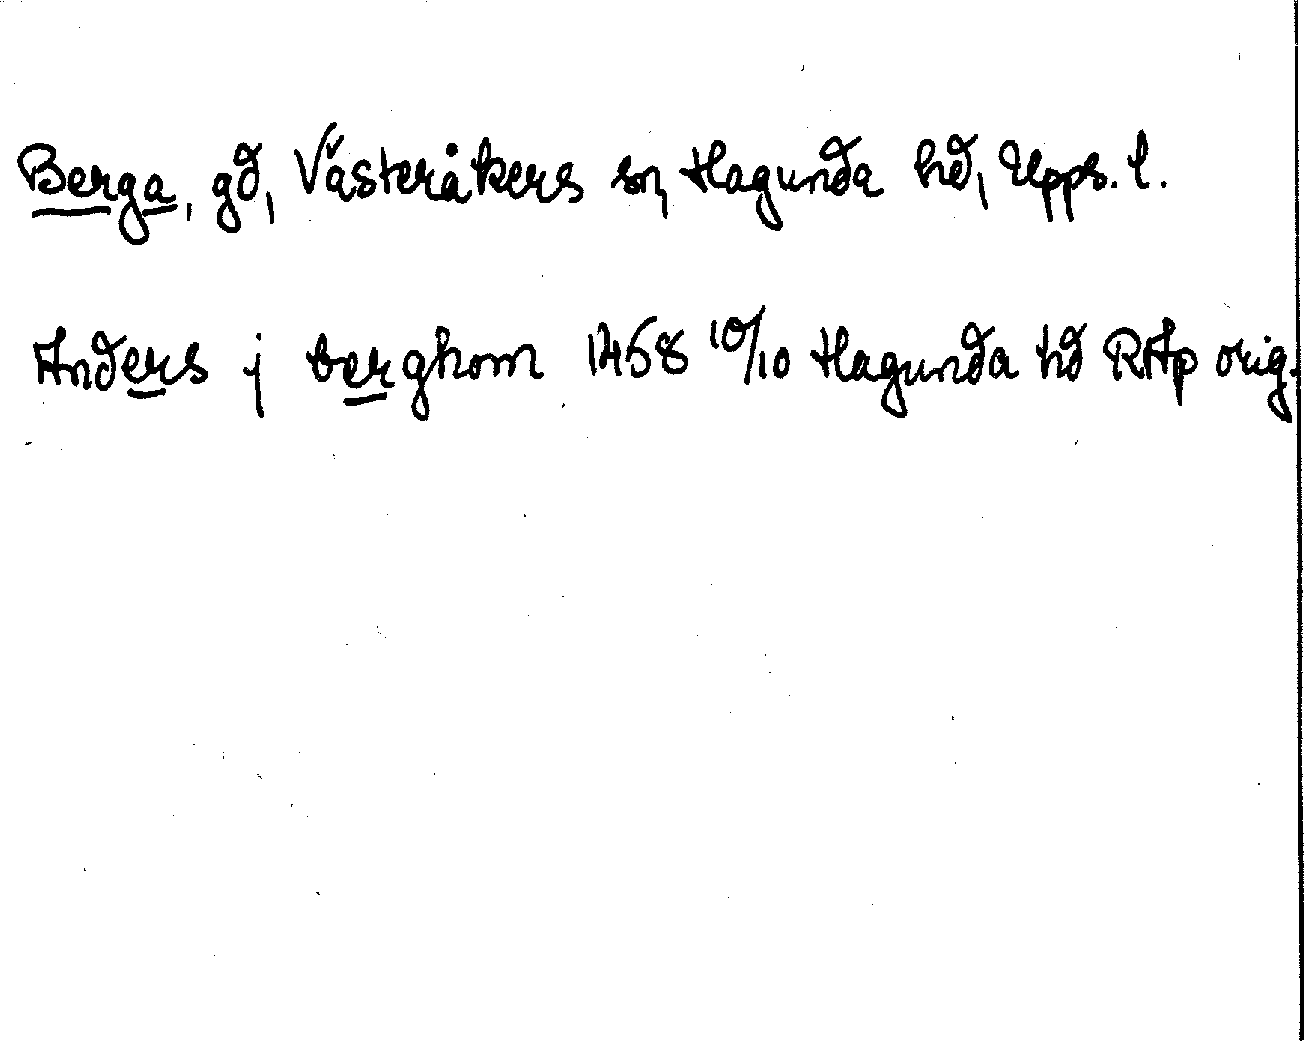 Berga, gd, Västeråkers sn, Hagunda hd, Upps. l.
Anders j berghom 1458 10/10 Hagunda hd RAp orig.